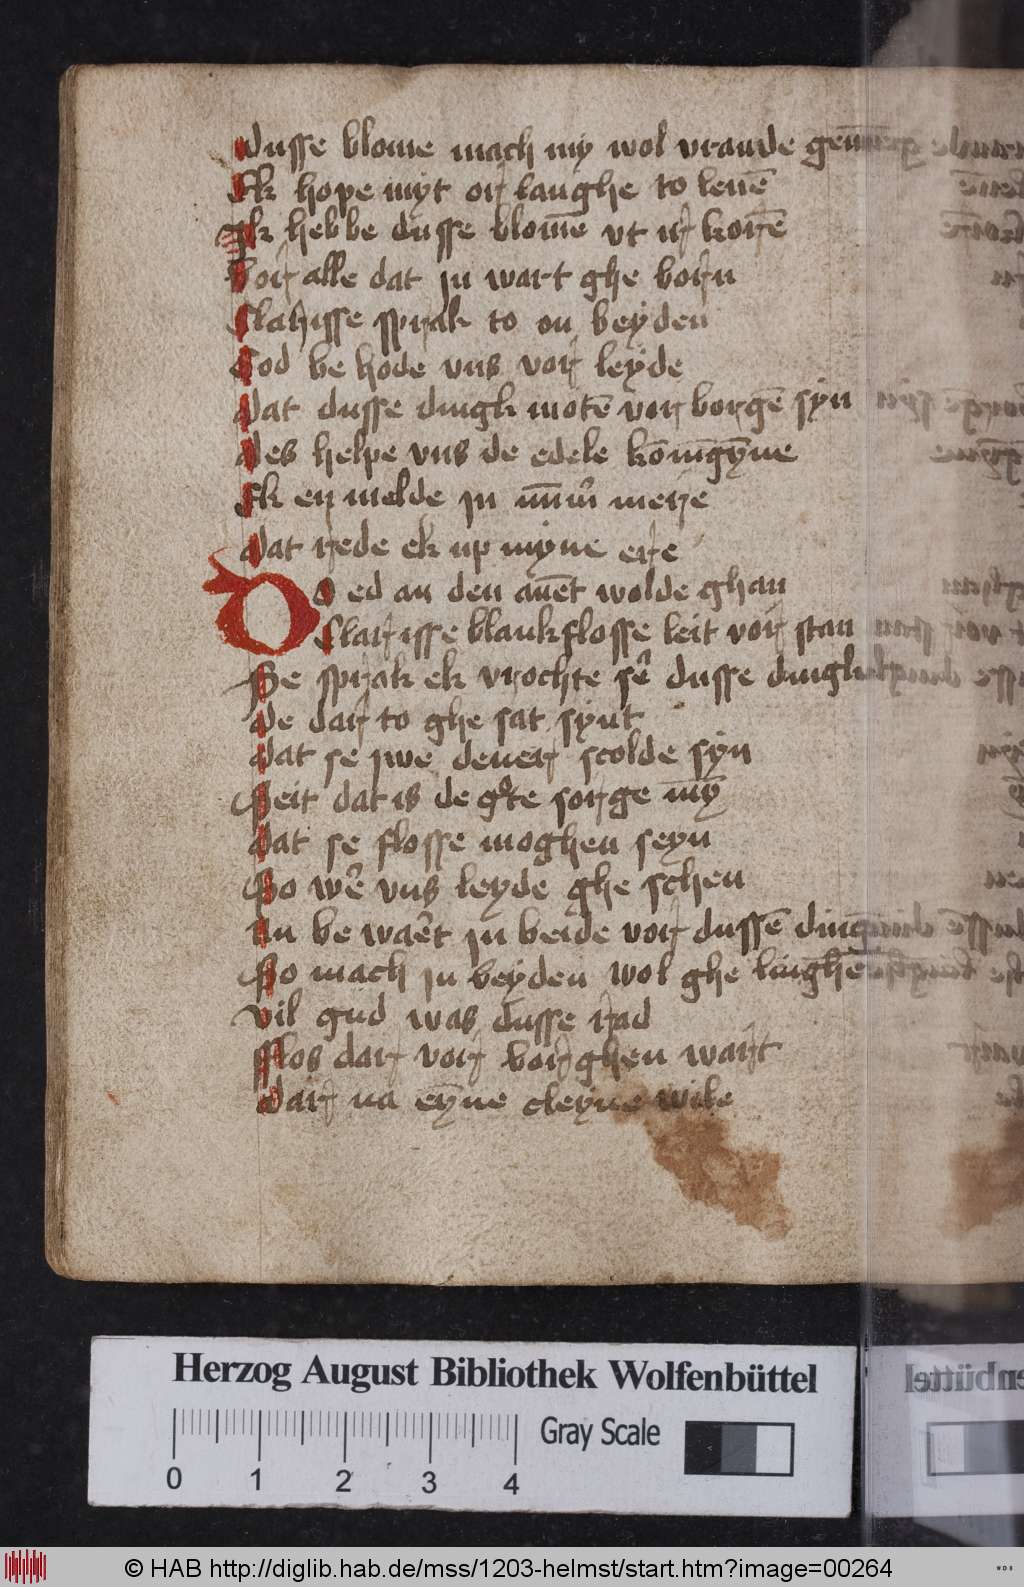 Dusse blome mach my wol vraude geuē
Ek hope myt or langhe to leuē
Ik hebbe dusse blom̄e vt ir korē
Vor alle dat ju wart ghe born
Clarisse sprak to on beyden
God be hode vns vor leyde
Dat dusse dingk motē vor borgē syn
Des helpe vns de edele konīgȳne
Ek en melde in mere
Dat rede ek up myne ere
Do ed an den auēt wolde ghan
Clarisse blankflosse leit vor stan
Se sprak ek vrochte ser dusse dingk
De dar to ghe sat synt
Dat se jwe dener scolde syn
Seit dat is de grote sorge my̅
Dat se flosse moghen seyn
So wer vns leyde ghe schen
Nu be waert ju beide vor dussē dingē
So mach ju beyden wol ghe lingħē
Vil gud was dusse rad
Flos dar vor borghen wart
Dar na eyne cleyne wile
Herzog August Bibliothek Wolfenbüttel
0 1 2 3 4
Gray Scale
© HAB http://diglib.hab.de/mss/1203-helmst/start.htm?image=00264